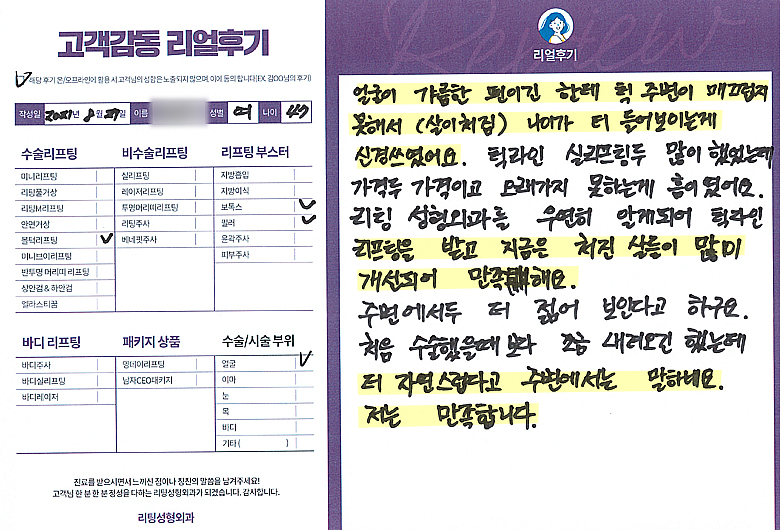 고객감동 리얼후기
해당 후기 온/오프라인에 활용 시 고객님의 성함은 노출되지 않으며, 이에 동의 합니다(EX. 김OO님의 후기)
작성일 2021년 8월 27일 이름 성별 여 나이 47
수술리프팅
미니리프팅
리팅풀거상
리팅M리프팅
안면거상
볼턱리프팅
미니브이리프팅
반투명 머리띠 리프팅
상안검 & 하안검
엘라스티꿈
비수술리프팅
실리프팅
레이저리프팅
투명머리띠리프팅
리팅주사
베네핏주사
리프팅 부스터
지방흡입
지방이식
보톡스
필러
윤곽주사
피부주사
바디 리프팅
바디주사
바디실리프팅
바디레이저
패키지 상품
밍네이리프팅
남자CEO패키지
수술/시술 부위
얼굴
이마
눈
목
바디
기타 ( )
진료를 받으시면서 느끼신 점이나 칭찬의 말씀을 남겨주세요!
고객님 한 분 한 분 정성을 다하는 리팅성형외과가 되겠습니다. 감사합니다.
리팅성형외과
리얼후기
얼굴이 갸름한 편이긴 한테 턱 주변이 매끄럽지
못해서 (살이처짐) 나이가 더 들어보이는게
신경쓰였어요. 턱라인 실리프팅두 많이 했었는데
가격두 가격이고 오래가지 못하는게 흠이였어요.
리팅 성형외과를 우연히 알게되어 턱라인
리프팅을 받고 지금은 처진 살들이 많이
개선되어 만족해요.
주변에서두 더 젊어 보인다고 하구요.
처음 수술했을때 보다 조금 내려오긴 했는데
더 자연스럽다고 주변에서는 말하네요.
저는 만족합니다.